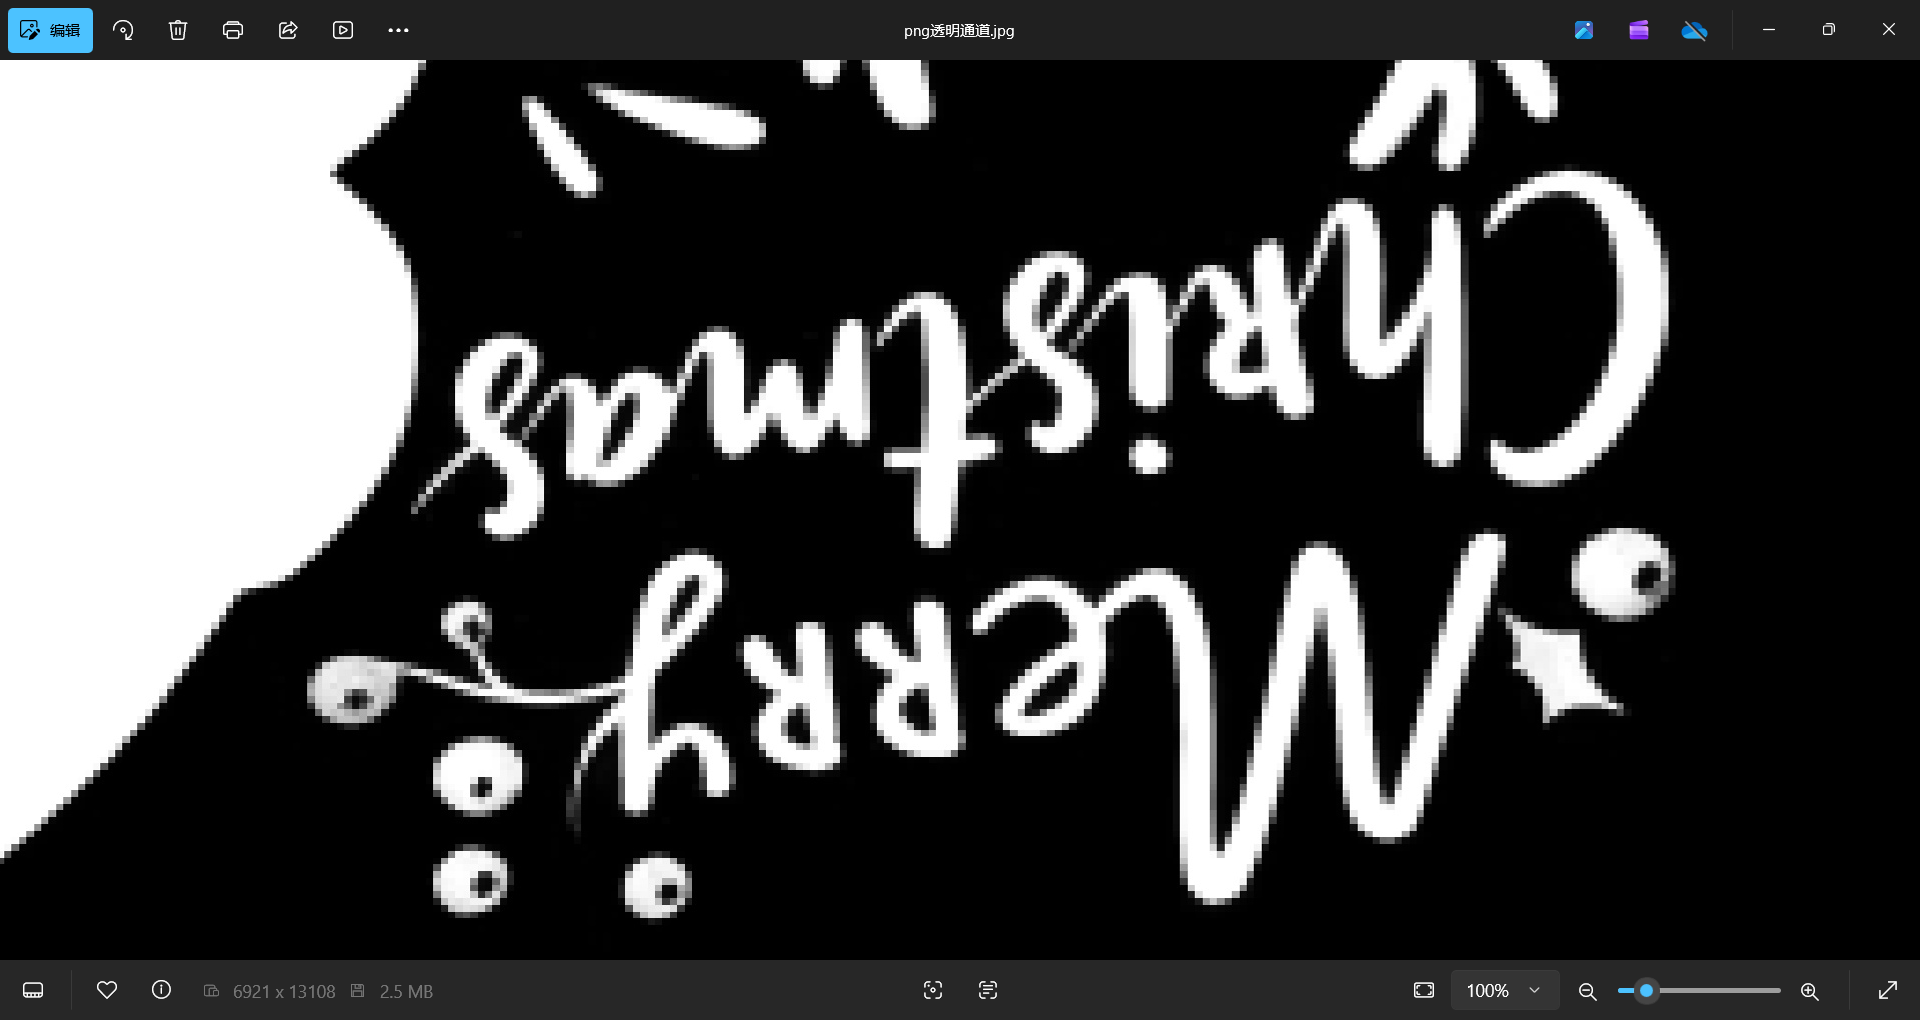 编辑
png透明通道.jpg
Merry
Christmas
6921 x 13108
2.5 MB
100%